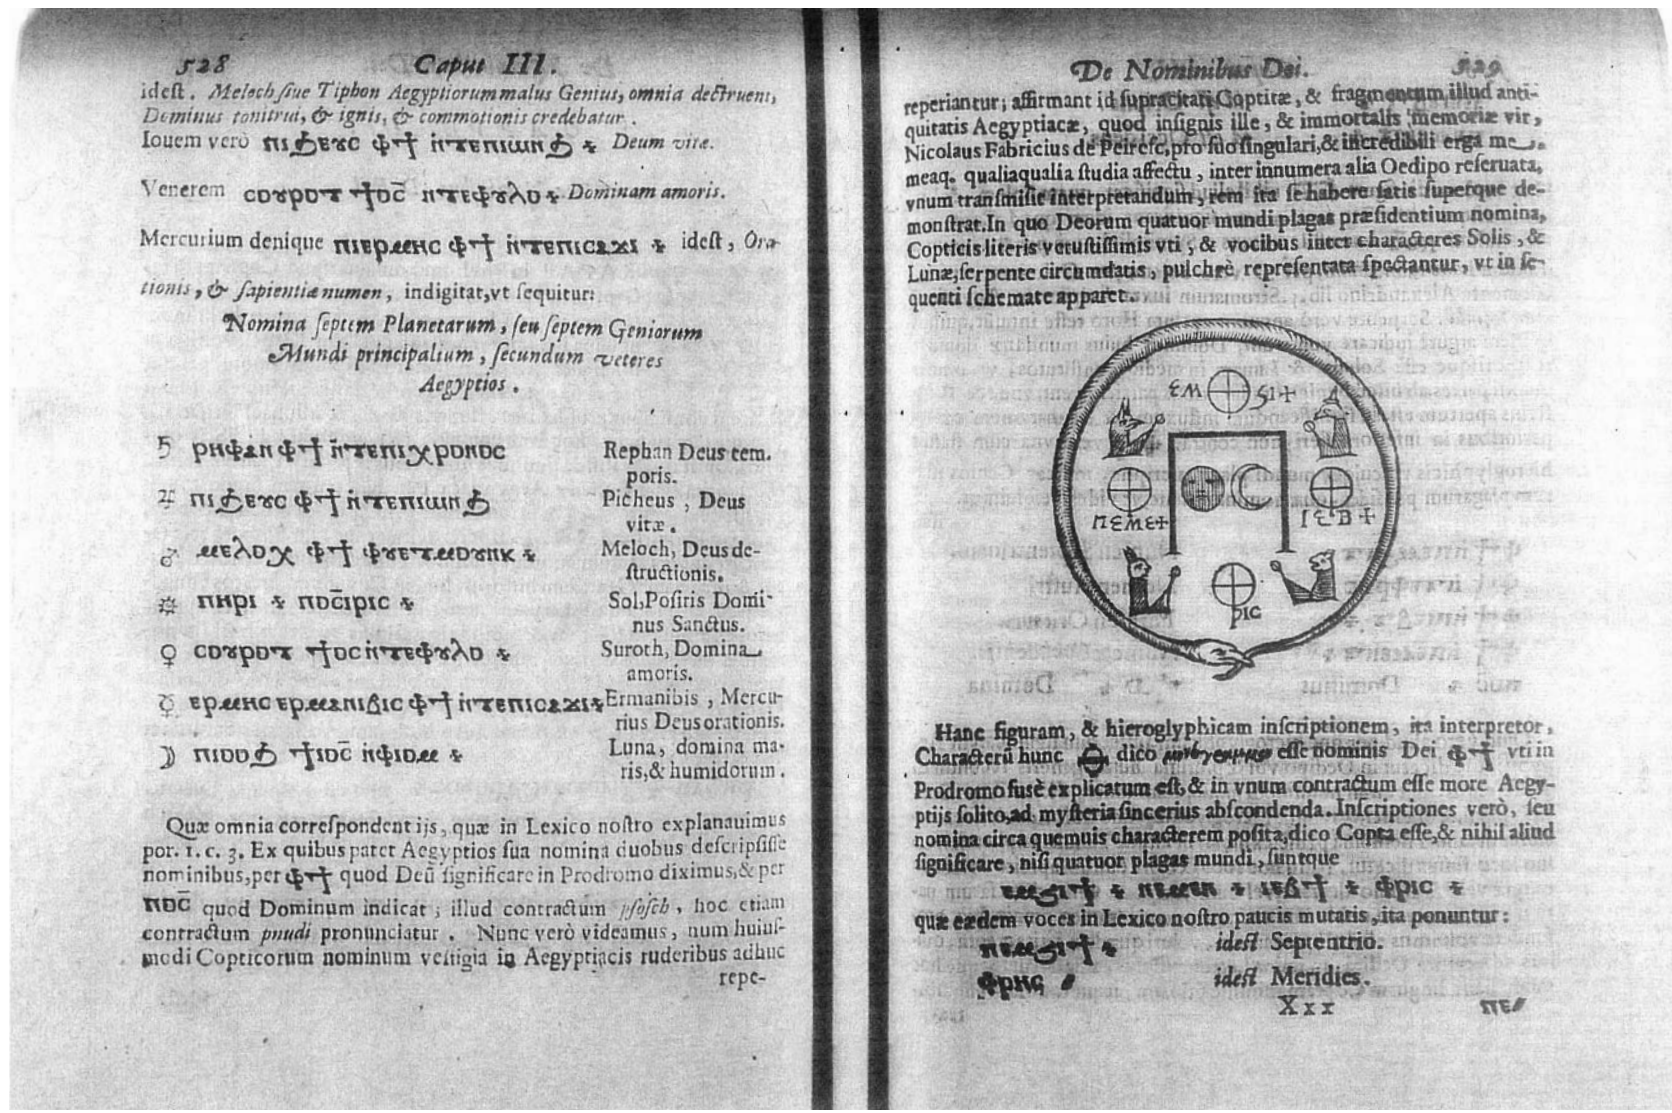 528 Caput III.
idest. Meloch siue Tiphon Aegyptiorum malus Genius, omnia destruens,
Dominus tonitrui, & ignis, & commotionis credebatur.
Iouem verò ⲡⲓϧⲉⲩⲥ ⲫϯ ⲛ̀ⲧⲉⲡⲓⲱⲛϧ Deum vitæ.
Venerem ⲥⲟⲩⲣⲟⲧ ϯⲟⲥ̄ ⲛⲧⲉⲫⲩⲗⲟ Dominam amoris.
Mercurium denique ⲡⲓⲉⲣⲙⲏⲥ ⲫϯ ⲛ̀ⲧⲉⲡⲓⲥⲁϫⲓ idest, Ora-
tionis, & sapientiæ numen, indigitat, vt sequitur:
Nomina septem Planetarum, seu septem Geniorum
Mundi principalium, secundum veteres
Aegyptios.
♄ ⲣⲏⲫⲁⲛ ⲫϯ ⲛ̀ⲧⲉⲡⲓⲭⲣⲟⲛⲟⲥ Rephan Deus tem.
poris.
♃ ⲡⲓϧⲉⲩⲥ ⲫϯ ⲛ̀ⲧⲉⲡⲓⲱⲛϧ Picheus, Deus
vitæ.
♂ ⲙⲉⲗⲟⲭ ⲫϯ Meloch, Deus de-
structionis.
ⲡⲏⲣⲓ ⲡⲟⲥ̄ⲓⲣⲓⲥ Sol, Posiris Domi-
nus Sanctus.
♀ ⲥⲟⲩⲣⲟⲧ ϯⲟⲥ ⲛ̀ⲧⲉⲫⲩⲗⲟ Suroth, Domina
amoris.
☿ ⲉⲣⲙⲏⲥ ⲉⲣⲙⲁⲛⲓⲃⲓⲥ ⲫϯ ⲛ̀ⲧⲉⲡⲓⲥⲁϫⲓ Ermanibis, Mercu-
rius Deus orationis.
☽ ⲡⲓⲟⲟϩ ϯⲟⲥ̄ ⲛ̀ⲫⲓⲟⲙ Luna, domina ma-
ris, & humidorum.
Quæ omnia correspondent ijs, quæ in Lexico nostro explanauimus
por. 1. c. 3. Ex quibus patet Aegyptios sua nomina duobus descripsisse
nominibus, per ⲫϯ quod Deũ significare in Prodromo diximus, & per
ⲡⲟⲥ̄ quod Dominum indicat; illud contractum psosch, hoc etiam
contractum pnudi pronunciatur. Nunc verò videamus, num huius-
modi Copticorum nominum vestigia in Aegyptiacis ruderibus adhuc
repe-
De Nominibus Dei. 529
reperiantur; affirmant id supracitati Coptitæ, & fragmentum illud anti-
quitatis Aegyptiacæ, quod insignis ille, & immortalis memoriæ vir,
Nicolaus Fabricius de Peiresc, pro suo singulari, & incredibili erga me,
meaq. qualiaqualia studia affectu, inter innumera alia Oedipo reseruata,
vnum transmisit interpretandum, rem ita se habere satis superque de-
monstrat. In quo Deorum quatuor mundi plagas præsidentium nomina,
Copticis literis vetustissimis vti, & vocibus inter characteres Solis, &
Lunæ, serpente circumdatis, pulchrè representata spectantur, vt in se-
quenti schemate apparet.
ⲉⲙ ϩⲓϯ
ⲡⲉⲙⲉϯ ⲓⲉⲃϯ
ⲣⲓⲥ
Hanc figuram, & hieroglyphicam inscriptionem, ita interpretor,
Characterũ hunc dico esse nominis Dei ⲫϯ vti in
Prodromo fusè explicatum est, & in vnum contractum esse more Aegy-
ptijs solito, ad mysteria sincerius abscondenda. Inscriptiones verò, seu
nomina circa quemuis characterem posita, dico Copta esse, & nihil aliud
significare, nisi quatuor plagas mundi, suntque
ⲉⲙϩⲓϯ ⲡⲉⲙⲉⲛ ⲓⲉⲃϯ ⲫⲣⲓⲥ
quæ eædem voces in Lexico nostro paucis mutatis, ita ponuntur:
ⲡⲉⲙϩⲓϯ idest Septentrio.
ⲫⲣⲏⲥ idest Meridies.
Xxx ⲡⲉ